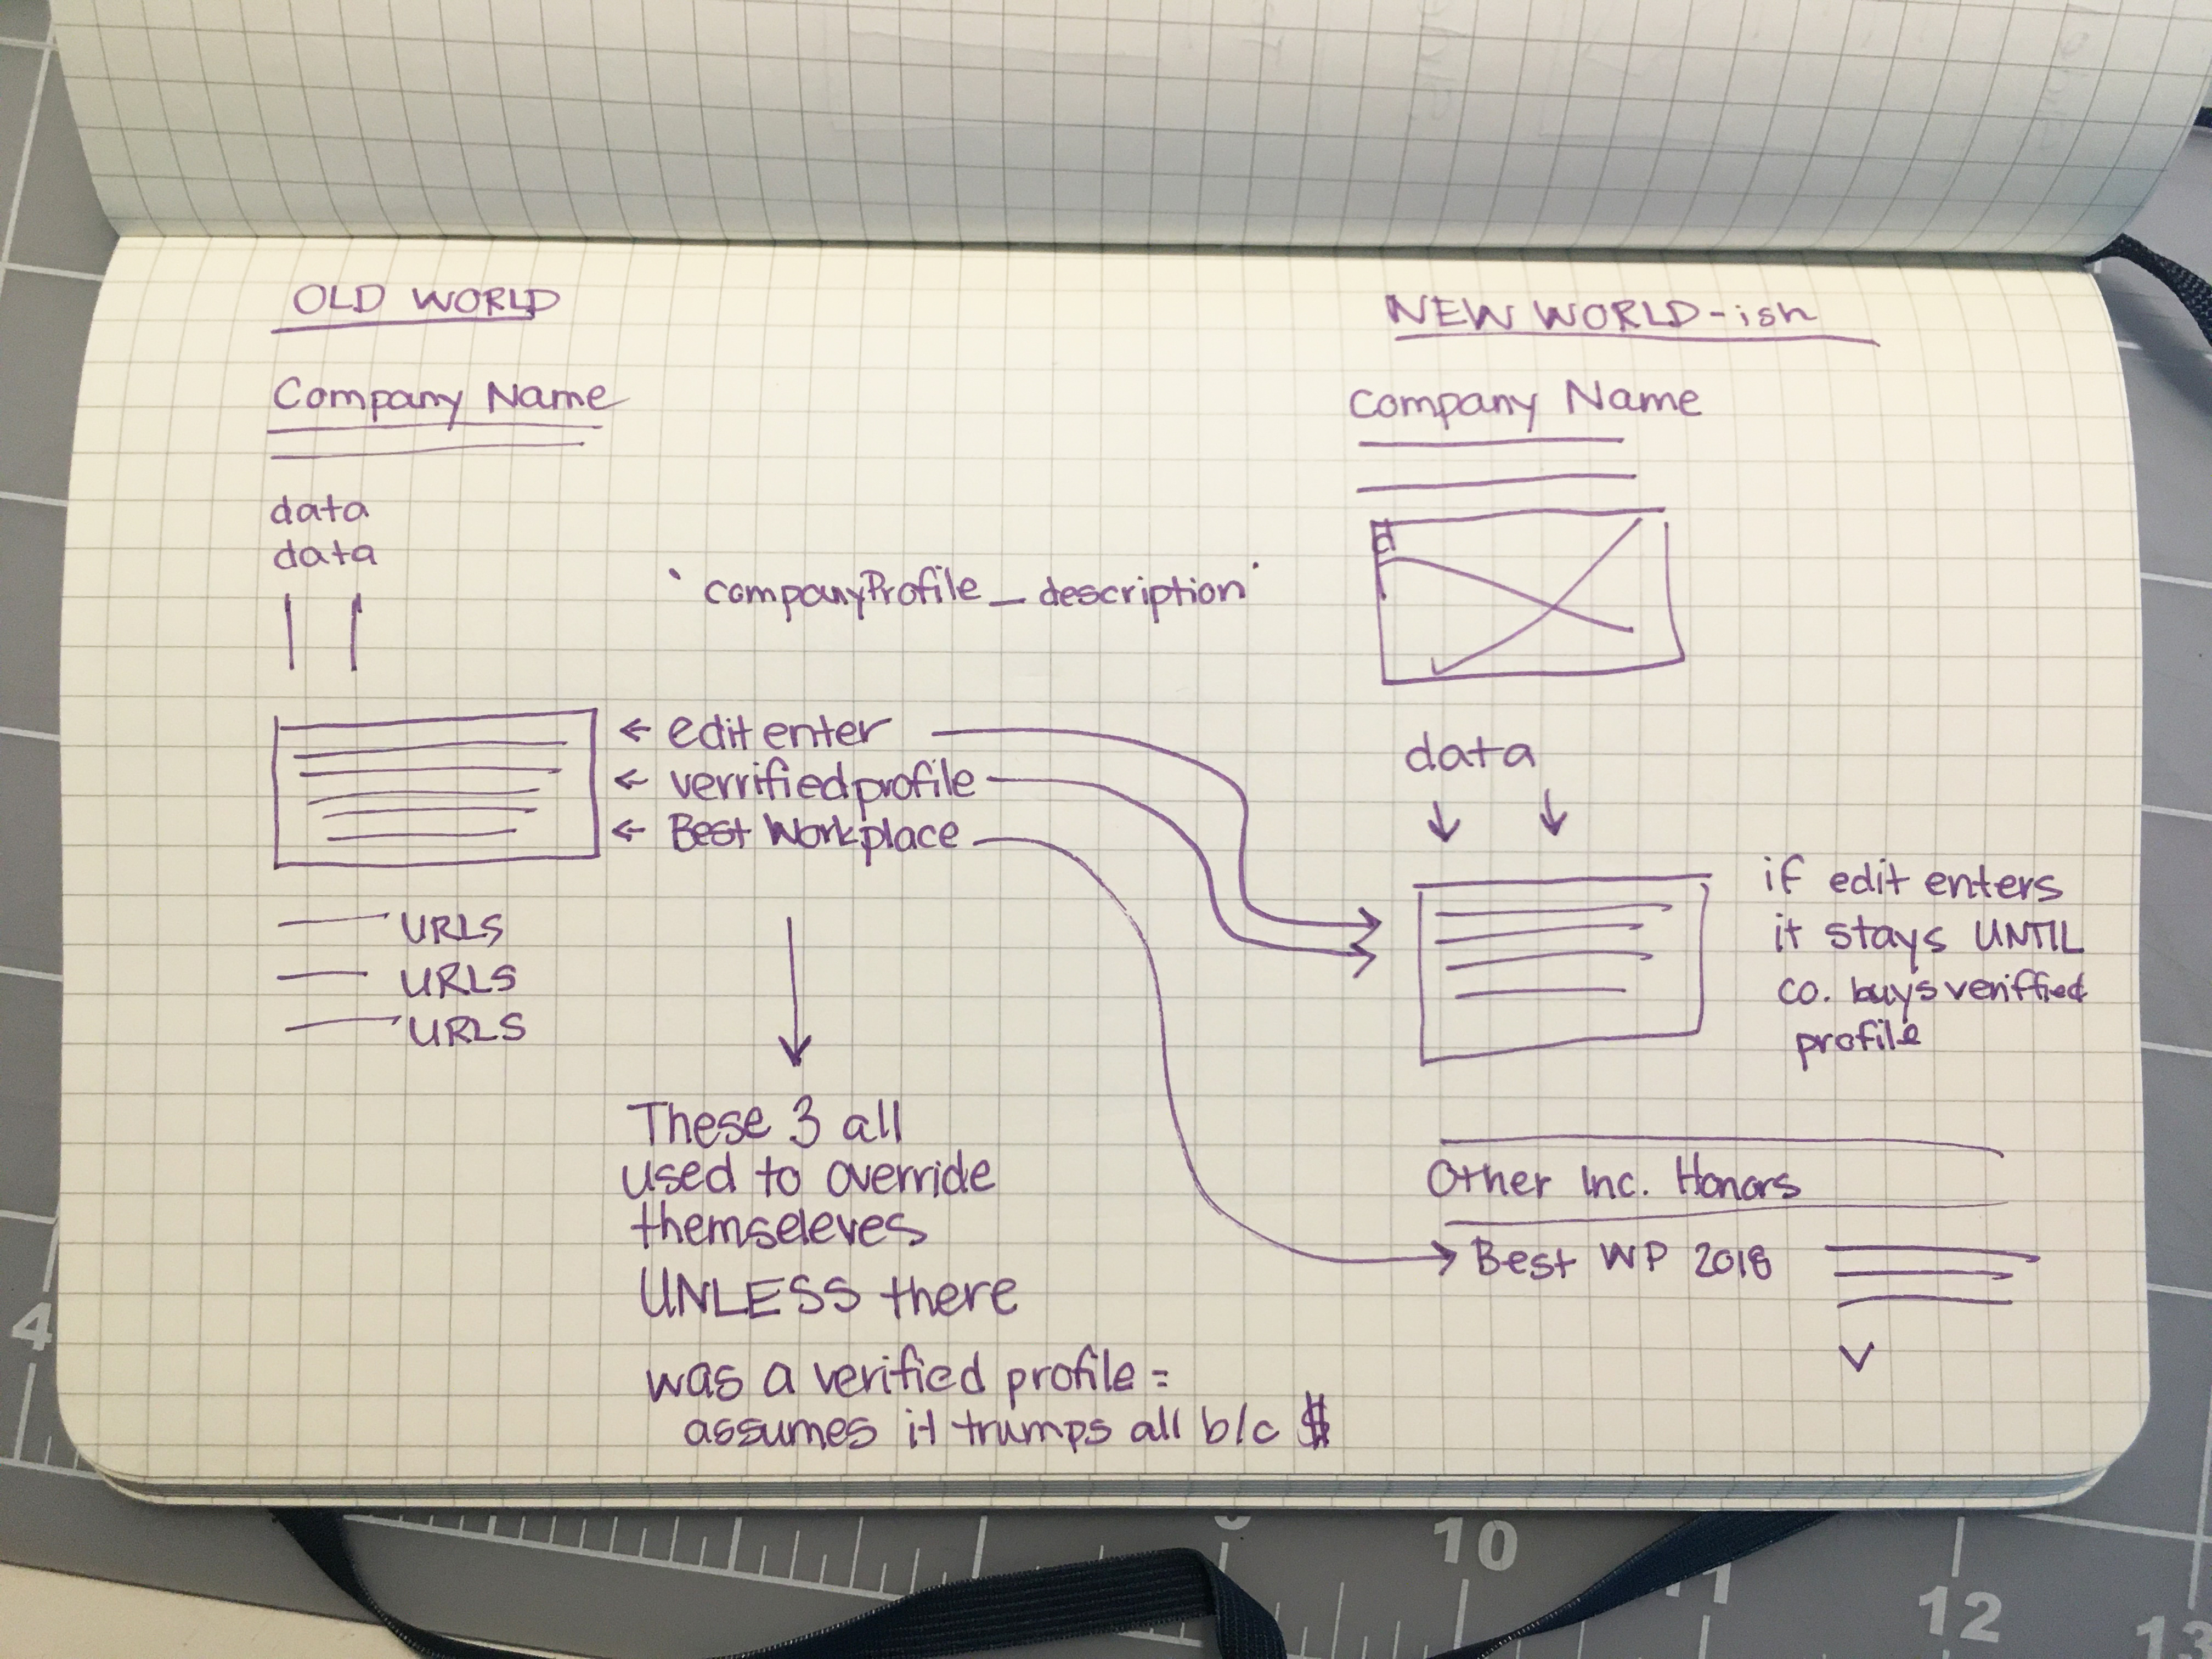 OLD WORLD
Company Name
data
data
'companyProfile_description'
← edit enter
← verrifiedprofile
← Best Workplace
URLS
URLS
URLS
These 3 all
used to override
themseleves
UNLESS there
was a verified profile =
assumes it trumps all b/c $
NEW WORLD-ish
Company Name
d
data
if edit enters
it stays UNTIL
co. buys veriffied
profile
Other Inc. Honors
Best WP 2018
4
10
11
12
13